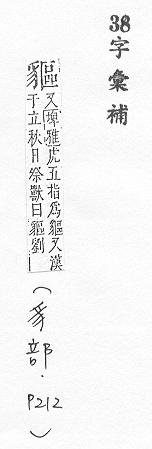 38字彙補
貙
又埤雅虎五指爲貙又漢
于立秋日祭獸曰貙劉
(豸部.P212)